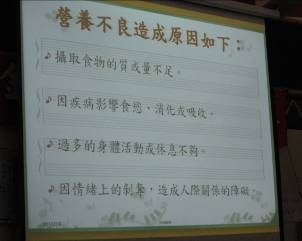 營養不良造成原因如下：
攝取食物的質或量不足。
因疾病影響食慾、消化或吸收。
過多的身體活動或休息不夠。
因情緒上的刺激，造成人際關係的障礙